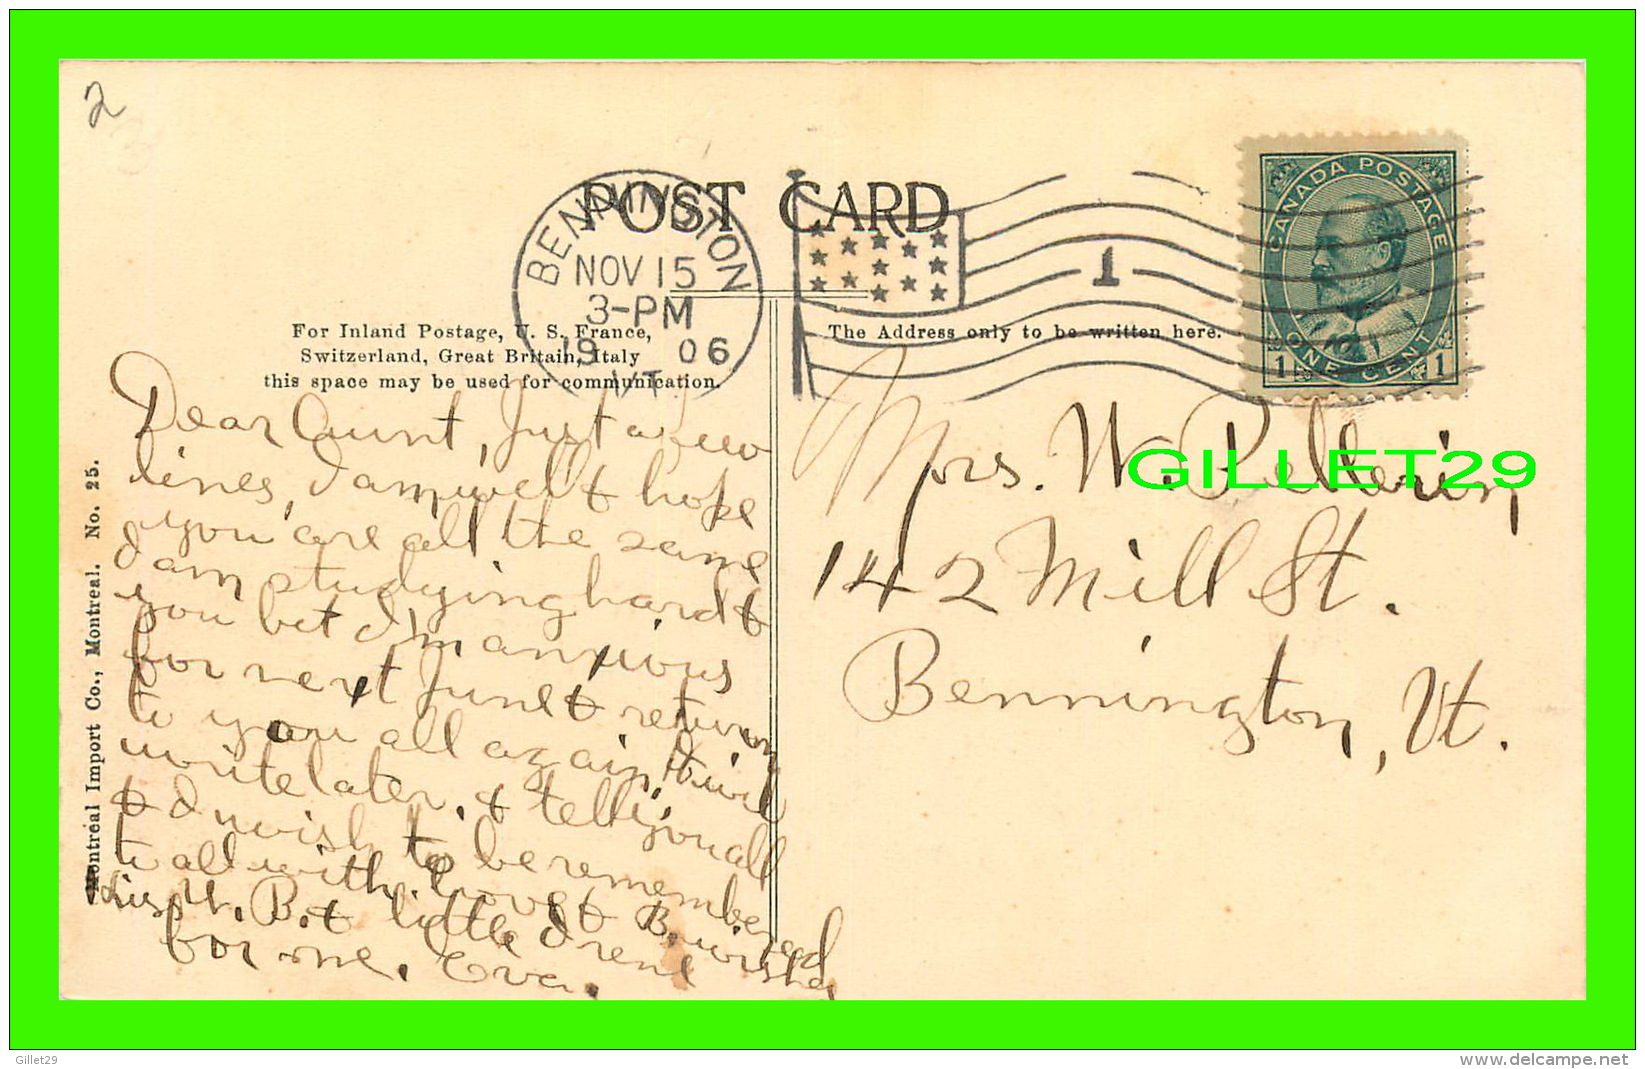 2
POST CARD
BENNINGTON
NOV 15
3-PM
19 06
VT
1
CANADA POSTAGE
ONE CENT
1 1
For Inland Postage, U. S. France,
Switzerland, Great Britain, Italy
this space may be used for communication.
The Address only to be written here.
Montreal Import Co., Montreal. No. 25.
Dear Aunt, Just a few
lines, I am well & hope
you are all the same
I am studying hard &
you bet I'm anxious
for next June & return
to you all again, I will
write later. & tell you all
& I wish to be remembered
to all with love &
Kiss B. & little Irene
for me. Eva.
Mrs. W. Pellerin
142 Mill St.
Bennington, Vt.
GILLET29
Gillet29
www.delcampe.net